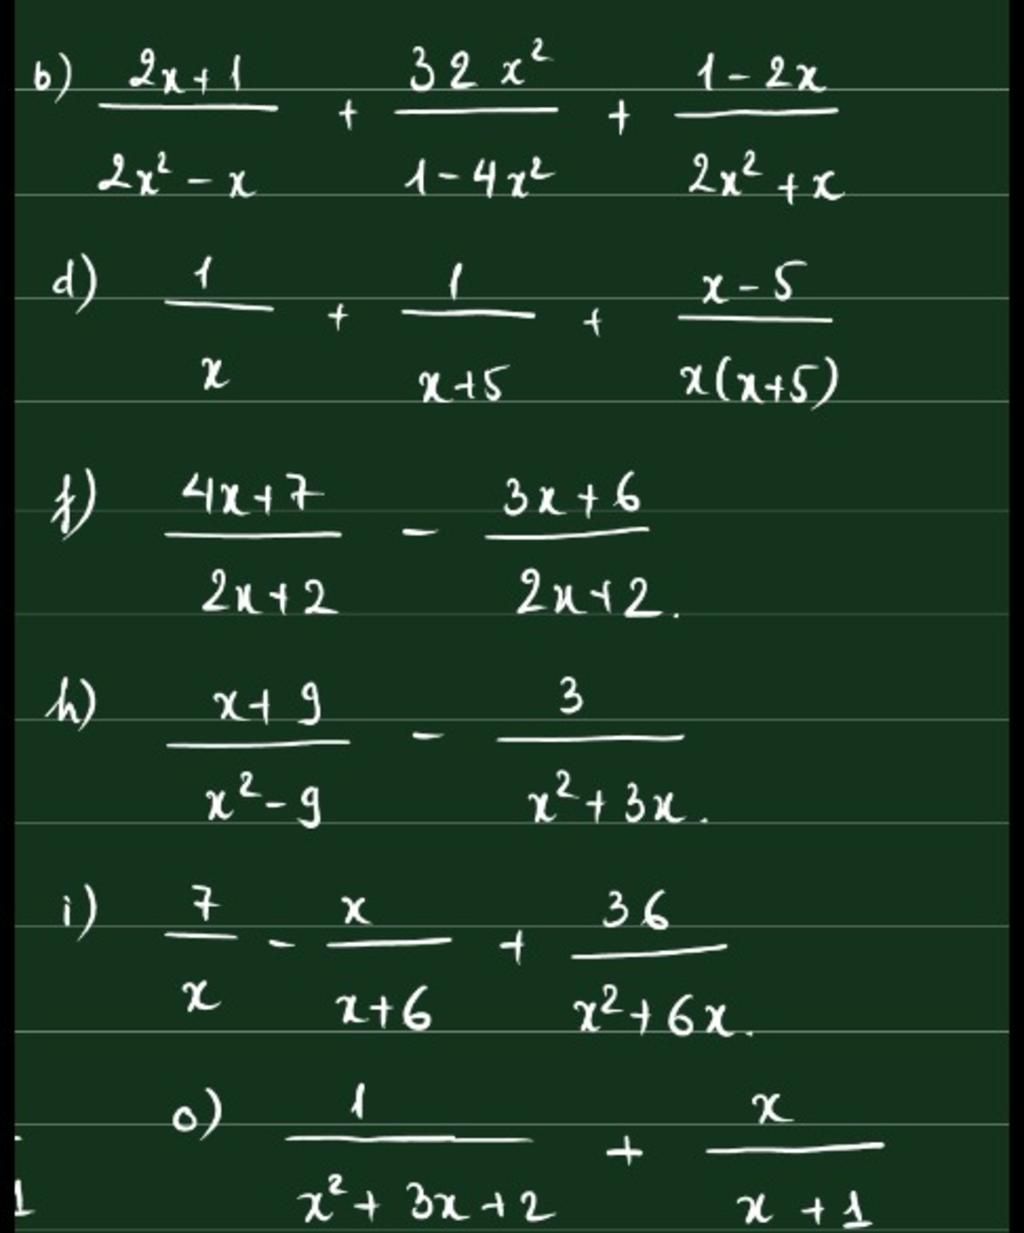 b) (2x+1)/(2x² - x) + (32x²)/(1-4x²) + (1-2x)/(2x²+x)
d) 1/x + 1/(x+5) + (x-5)/(x(x+5))
f) (4x+7)/(2x+2) - (3x+6)/(2x+2).
h) (x+9)/(x²-9) - 3/(x²+3x).
i) 7/x - x/(x+6) + 36/(x²+6x).
o) 1/(x²+3x+2) + x/(x+1)